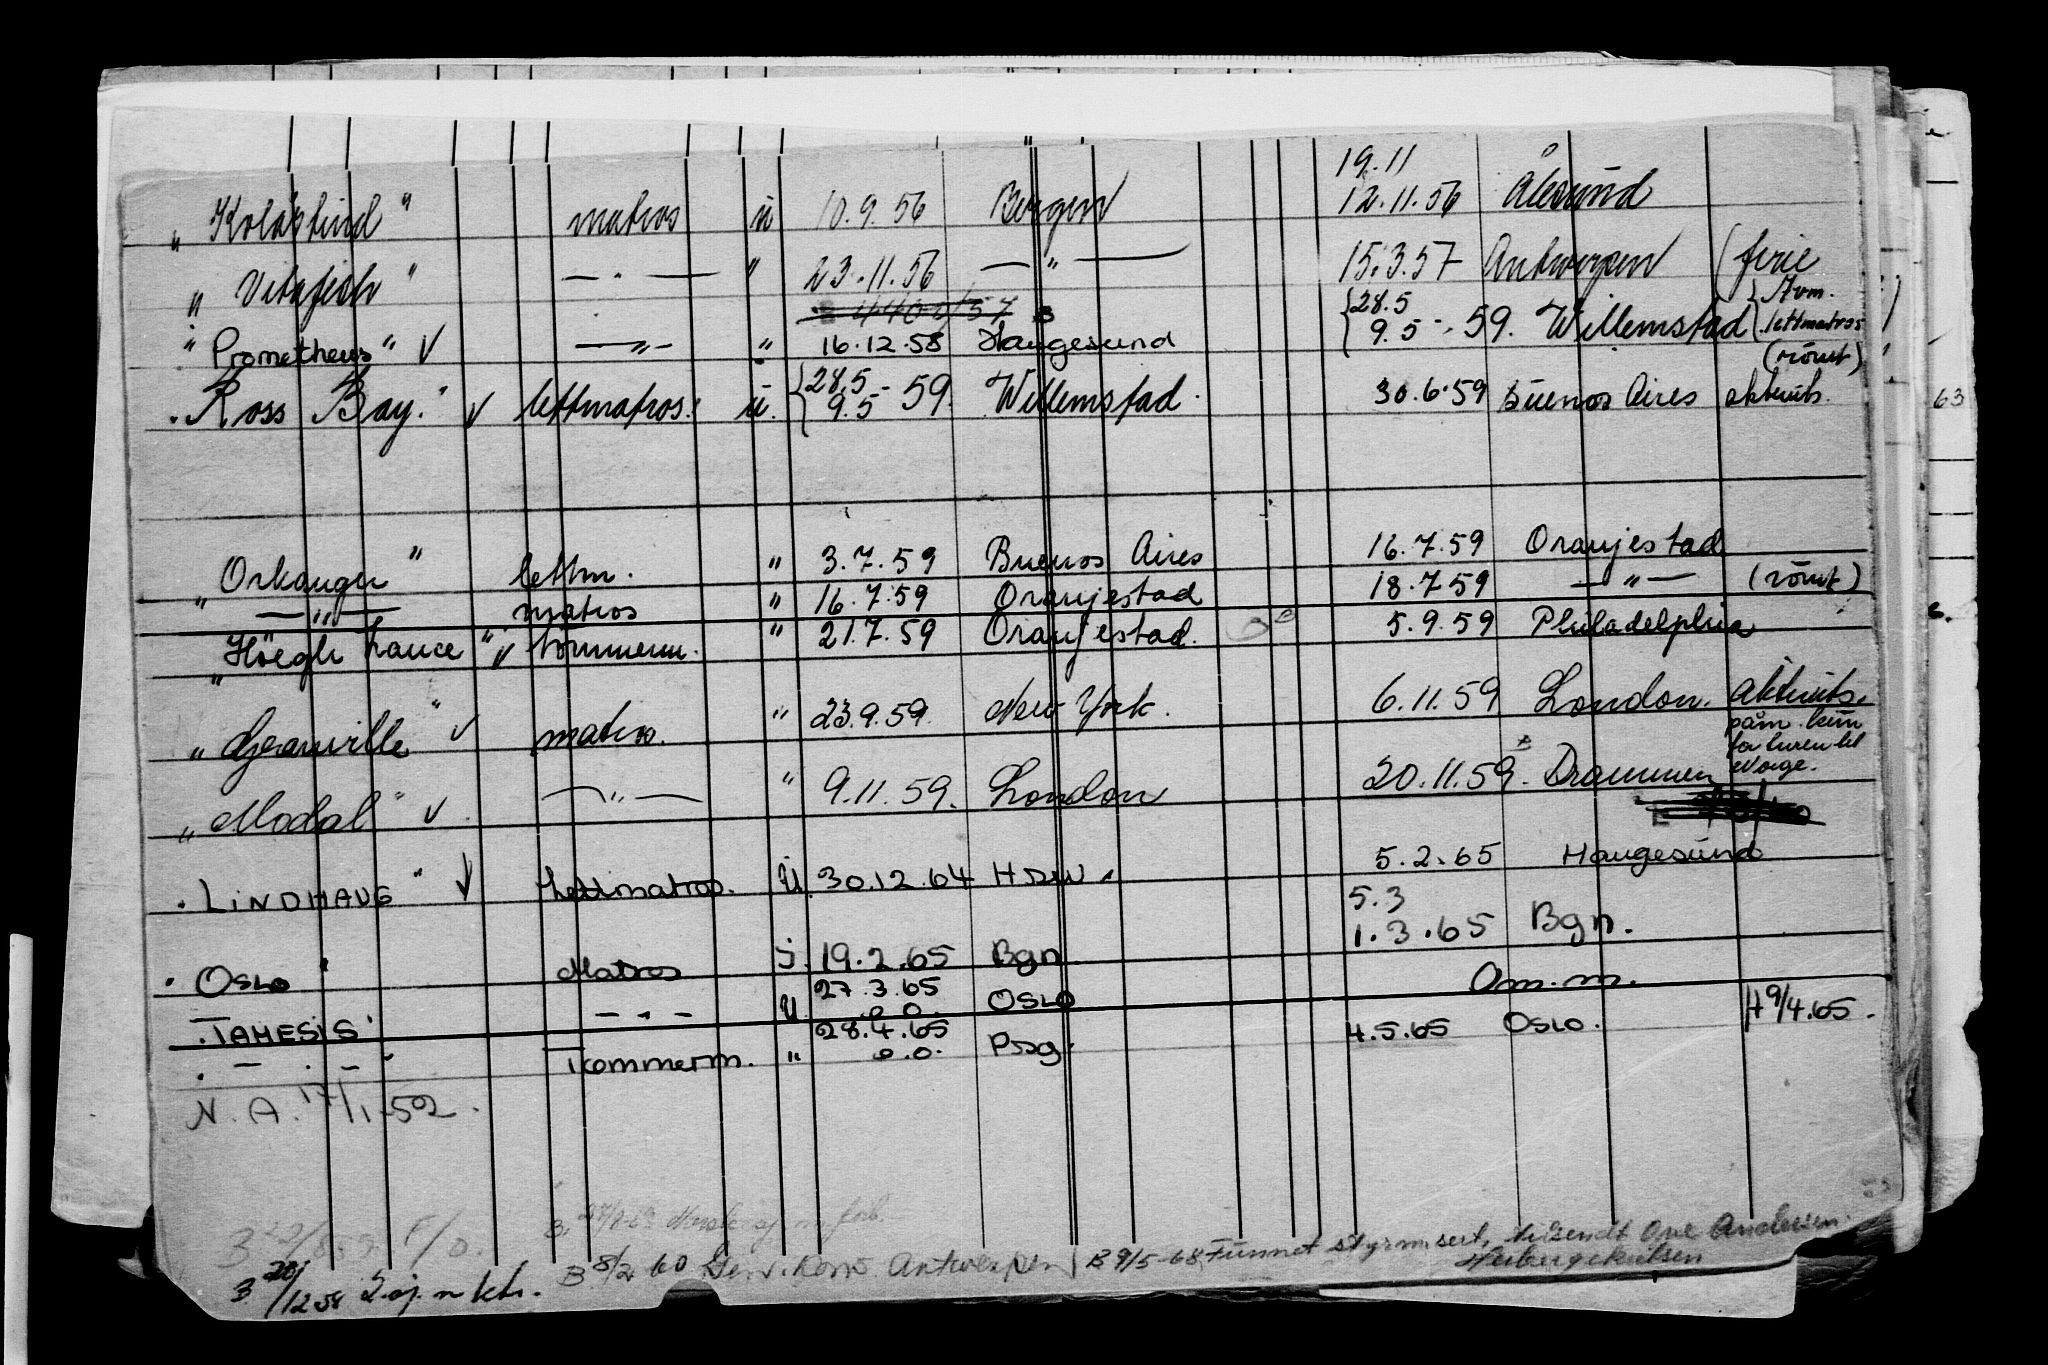 19.11
" Kolstind " matros u 10.9.56 Bergen 12.11.56 Ålesund
" Vitafish " — " — " 23.11.56 — " — 15.3.57 Antwerpen (ferie
28.5 Avm.
" Prometheus " V — " — " 16.12.58 Haugesund 9.5 - 59. Willemstad lettmatros
(römt)
" Ross Bay " V lettmatros. u. 28.5 - 59. Willemstad. 30.6.59 Buenos Aires
9.5
" Orkanger " lettm. " 3.7.59 Buenos Aires 16.7.59 Oranjestad
— " — matros " 16.7.59 Oranjestad 18.7.59 — " — (römt)
" Höegh Lance " V tömmerm. " 21.7.59 Oranjestad. 5.9.59 Philadelphia
" Granville " V matros. " 23.9.59. New York. 6.11.59 London.
påm. kun
for turen til
Norge.
" Modal " V — " — " 9.11.59. London 20.11.59. Drammen
" LINDHAUG " V Lettmatros. U 30.12.64 5.2.65 Haugesund
5.3
" OSLO " Matros j. 19.2.65 Bgn. 1.3.65 Bgn.
27.3.65
" TAMESIS " — " — U o.o. OSLO Om.m. H 9/4.65.
28.4.65
" — " — " Tømmerm. " o.o. Psg. 4.5.65 OSLO.
N.A. 17/1-52.
B 8/2 60 Gen.kons. Antwerpen B 9/5-68 Funnet styrm.sert, tilsendt Ove Andersen.
3 20/12 58 S.oj. n kt.